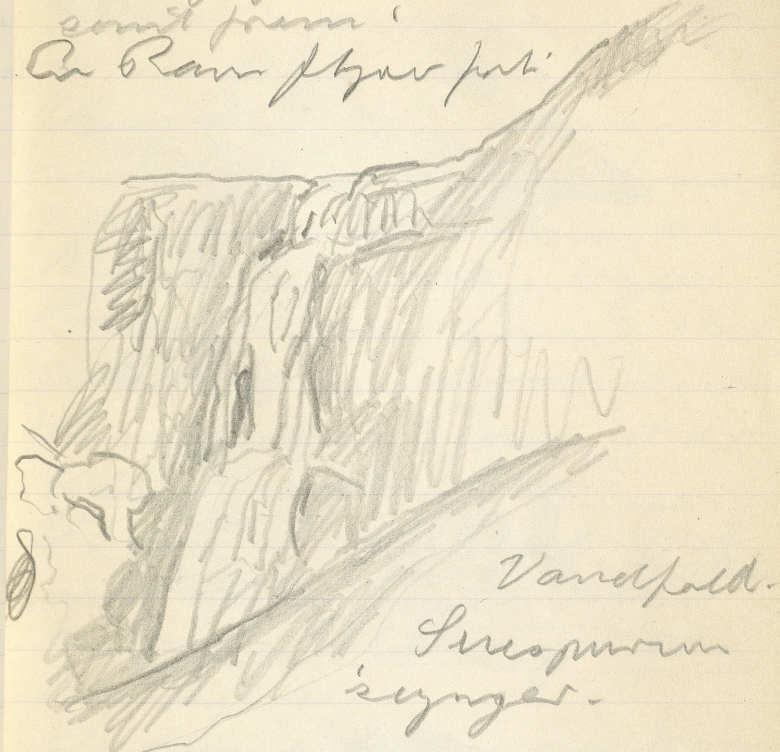 frem!
En Ravn flyver forbi.
Vandfald.
Snespurven
synger.